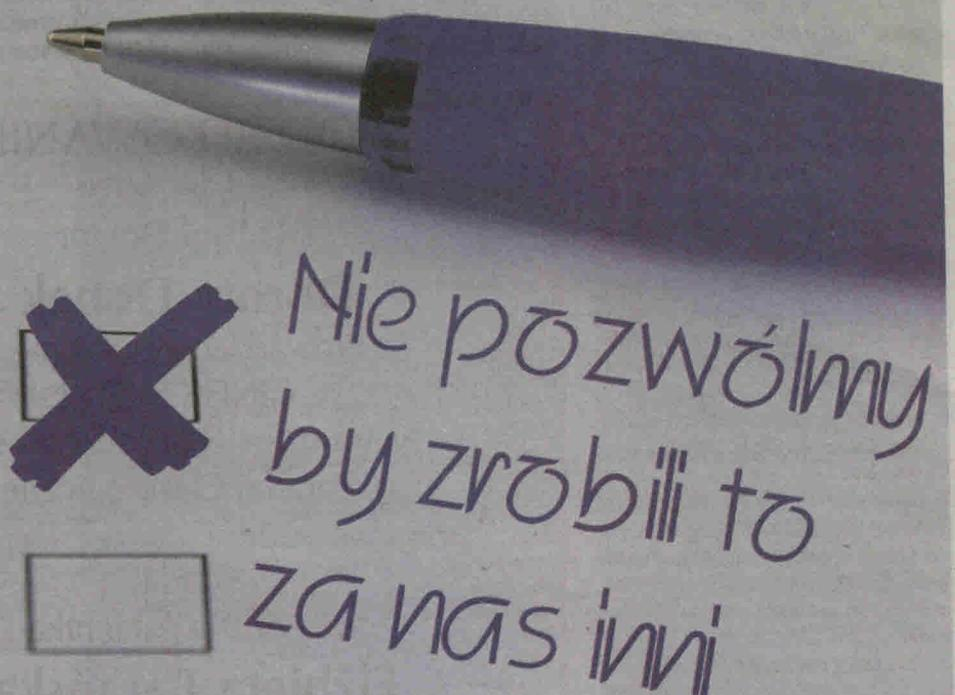 Nie pozwólmy
by zrobili to
za nas inni